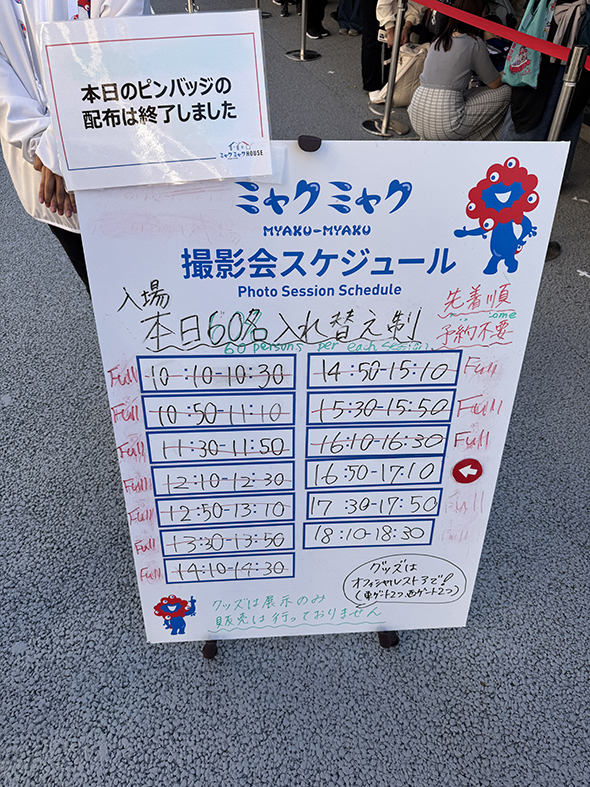 本日のピンバッジの
配布は終了しました
ミャクミャクHOUSE
ミャクミャク
MYAKU-MYAKU
撮影会スケジュール
Photo Session Schedule
入場
先着順
本日60名入れ替え制
予約不要
60 persons per each session
Full 10:10-10:30
14:50-15:10 Full
Full 10:50-11:10
15:30-15:50 Full
Full 11:30-11:50
16:10-16:30 Full
Full 12:10-12:30
16:50-17:10
Full 12:50-13:10
17:30-17:50
Full 13:30-13:50
18:10-18:30
Full 14:10-14:30
グッズは
オフィシャルストアで!
(東ゲート2つ、西ゲート2つ)
グッズは展示のみ
販売は行っておりません